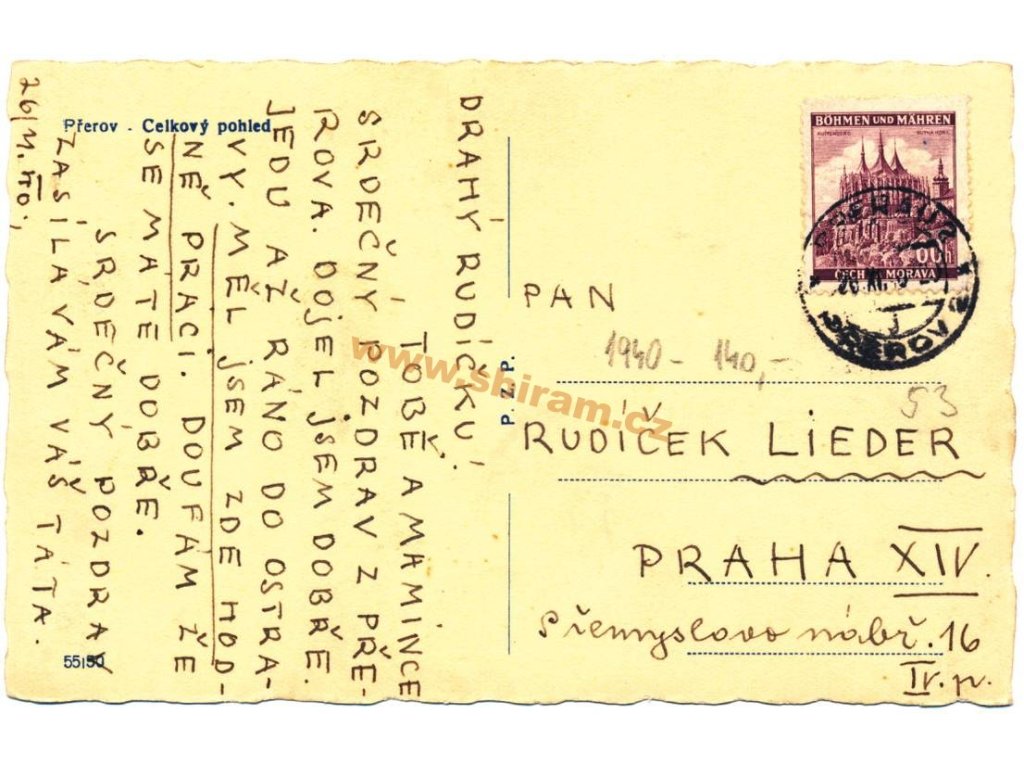 Přerov - Celkový pohled
26/XI.40.,
DRAHÝ RUDÍČKU!
TOBĚ A MAMINCE
SRDEČNÝ POZDRAV Z PŘE-
ROVA. DOJEL JSEM DOBŘE.
JEDU AŽ RÁNO DO OSTRA-
VY. MĚL JSEM ZDE HOD-
NĚ PRÁCI. DOUFÁM ŽE
SE MÁTE DOBŘE.
SRDEČNÝ POZDRAV
ZASÍLÁ VÁM VÁŠ TÁTA.
55150
P. Z. P.
BÖHMEN UND MÄHREN
KUTTENBERG KUTNÁ HORA
ČECHY A MORAVA
26. XI.
PŘEROV 2
PAN
1940 - 140,-
53
RUDÍČEK LIEDER
PRAHA XIV.
Přemyslovo nábř. 16
IV. p.
www.shiram.cz